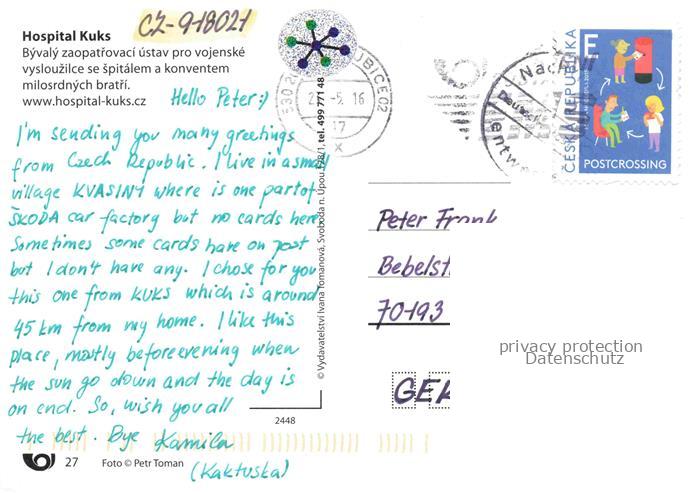 CZ-918021
Hospital Kuks
Bývalý zaopatřovací ústav pro vojenské
vysloužilce se špitálem a konventem
milosrdných bratří.
www.hospital-kuks.cz
Hello Peter:)
I'm sending you many greetings
from Czech Republic. I live in a small
village KVASINY where is one part of
ŠKODA car factory but no cards here.
Sometimes some cards have on post
but I don't have any. I chose for you
this one from KUKS which is around
45 km from my home. I like this
place, mostly before evening when
the sun go down and the day is
on end. So, wish you all
the best. Bye Kamila
(Kaktuska)
27 Foto © Petr Toman
© Vydavatelství Ivana Tomanová, Svoboda n. Úpou 278/1, tel. 499 771 48
2448
530 2
UBICE 02
-5 16
17
x
Nachen
Deutsche
entwe
ČESKÁ REPUBLIKA
E
POSTCROSSING
Peter Frank
Bebelst
70193
GER
privacy protection
Datenschutz